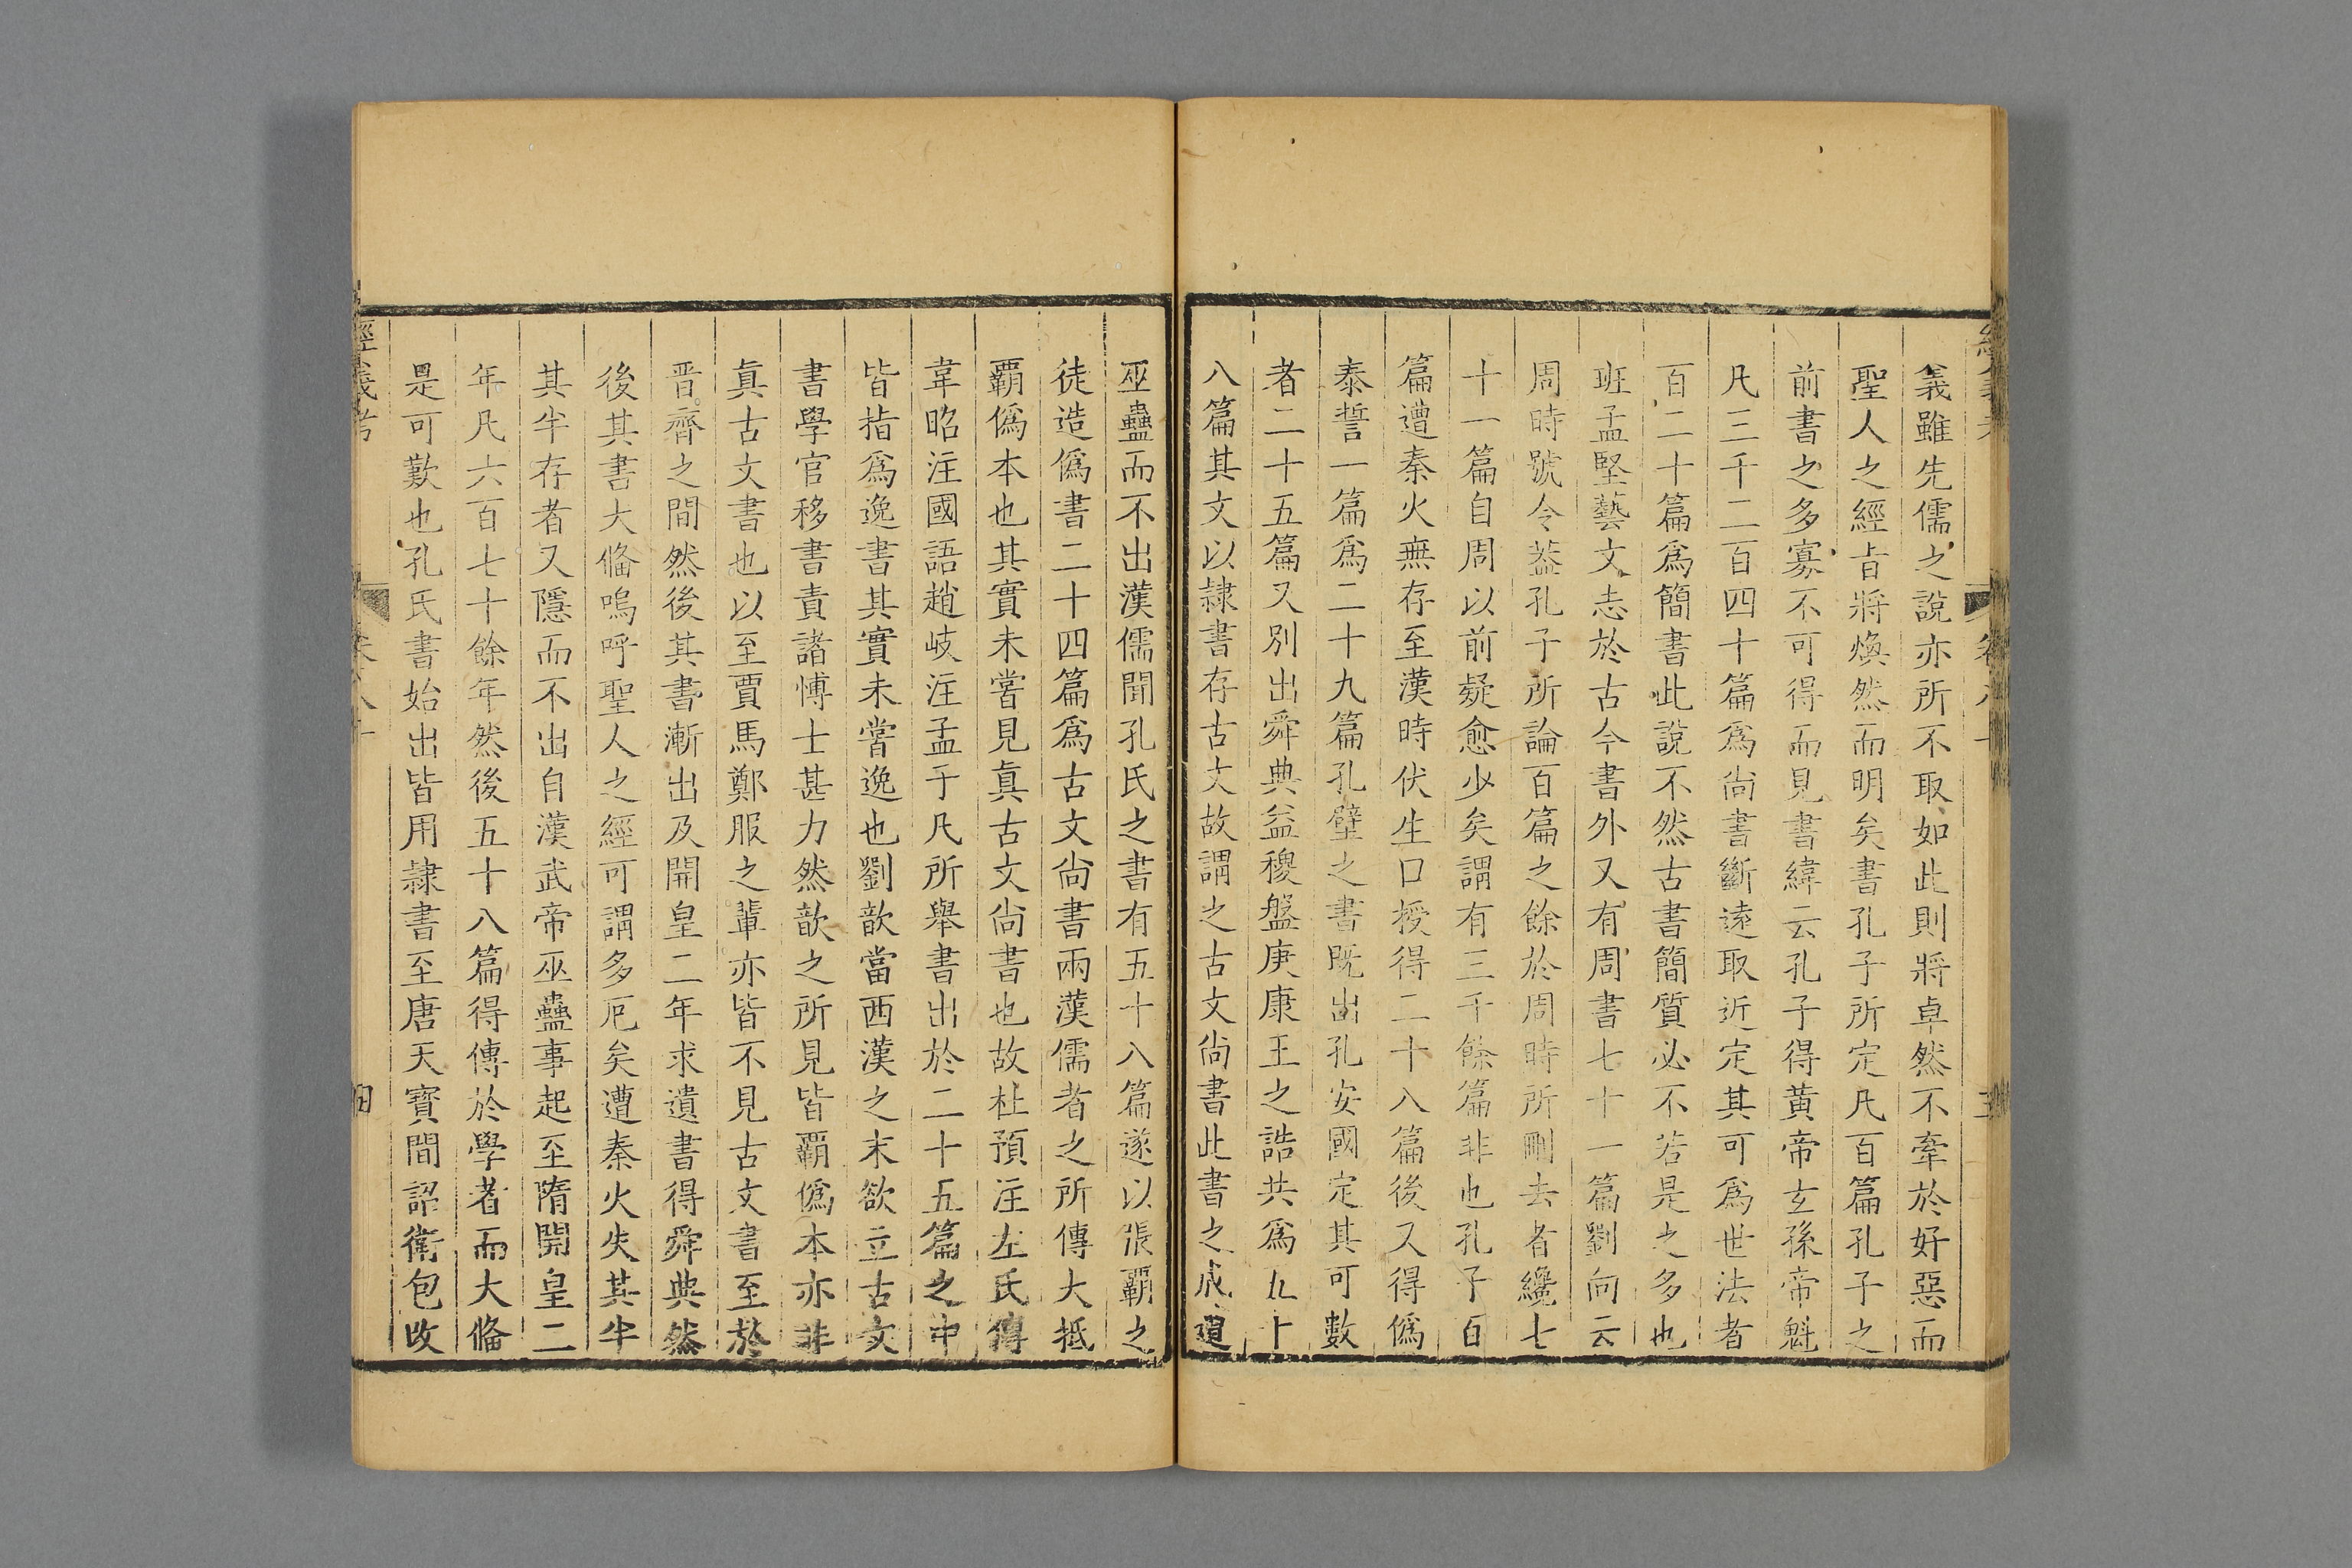 義雖先儒之說亦所不取如此則將卓然不牽於好惡而
聖人之經旨將煥然而明矣書孔子所定凡百篇孔子之
前書之多寡不可得而見書緯云孔子得黃帝玄孫帝魁
凡三千二百四十篇爲尙書斷遠取近定其可爲世法者
百二十篇爲簡書此說不然古書簡質必不若是之多也
班孟堅藝文志於古今書外又有周書七十一篇劉向云
周時號令葢孔子所論百篇之餘於周時所刪去者纔七
十一篇自周以前疑愈少矣謂有三千餘篇非也孔子百
篇遭秦火無存至漢時伏生口授得二十八篇後又得僞
泰誓一篇爲二十九篇孔壁之書既出孔安國定其可數
者二十五篇又別出舜典益稷盤庚康王之誥共爲五十
八篇其文以隷書存古文故謂之古文尙書此書之成遭
巫蠱而不出漢儒聞孔氏之書有五十八篇遂以張霸之
徒造僞書二十四篇爲古文尙書兩漢儒者之所傳大抵
霸僞本也其實未嘗見眞古文尙書也故杜預注左氏傳
韋昭注國語趙岐注孟子凡所舉書出於二十五篇之中
皆指爲逸書其實未嘗逸也劉歆當西漢之末欲立古文
書學官移書責諸愽士甚力然歆之所見皆霸僞本亦非
眞古文書也以至賈馬鄭服之輩亦皆不見古文書至於
晉齊之間然後其書漸出及開皇二年求遺書得舜典然
後其書大備嗚呼聖人之經可謂多厄矣遭秦火失其半
其半存者又隱而不出自漢武帝巫蠱事起至隋開皇二
年凡六百七十餘年然後五十八篇得傳於學者而大備
是可歎也孔氏書始出皆用隷書至唐天寶間詔衞包改
經義考